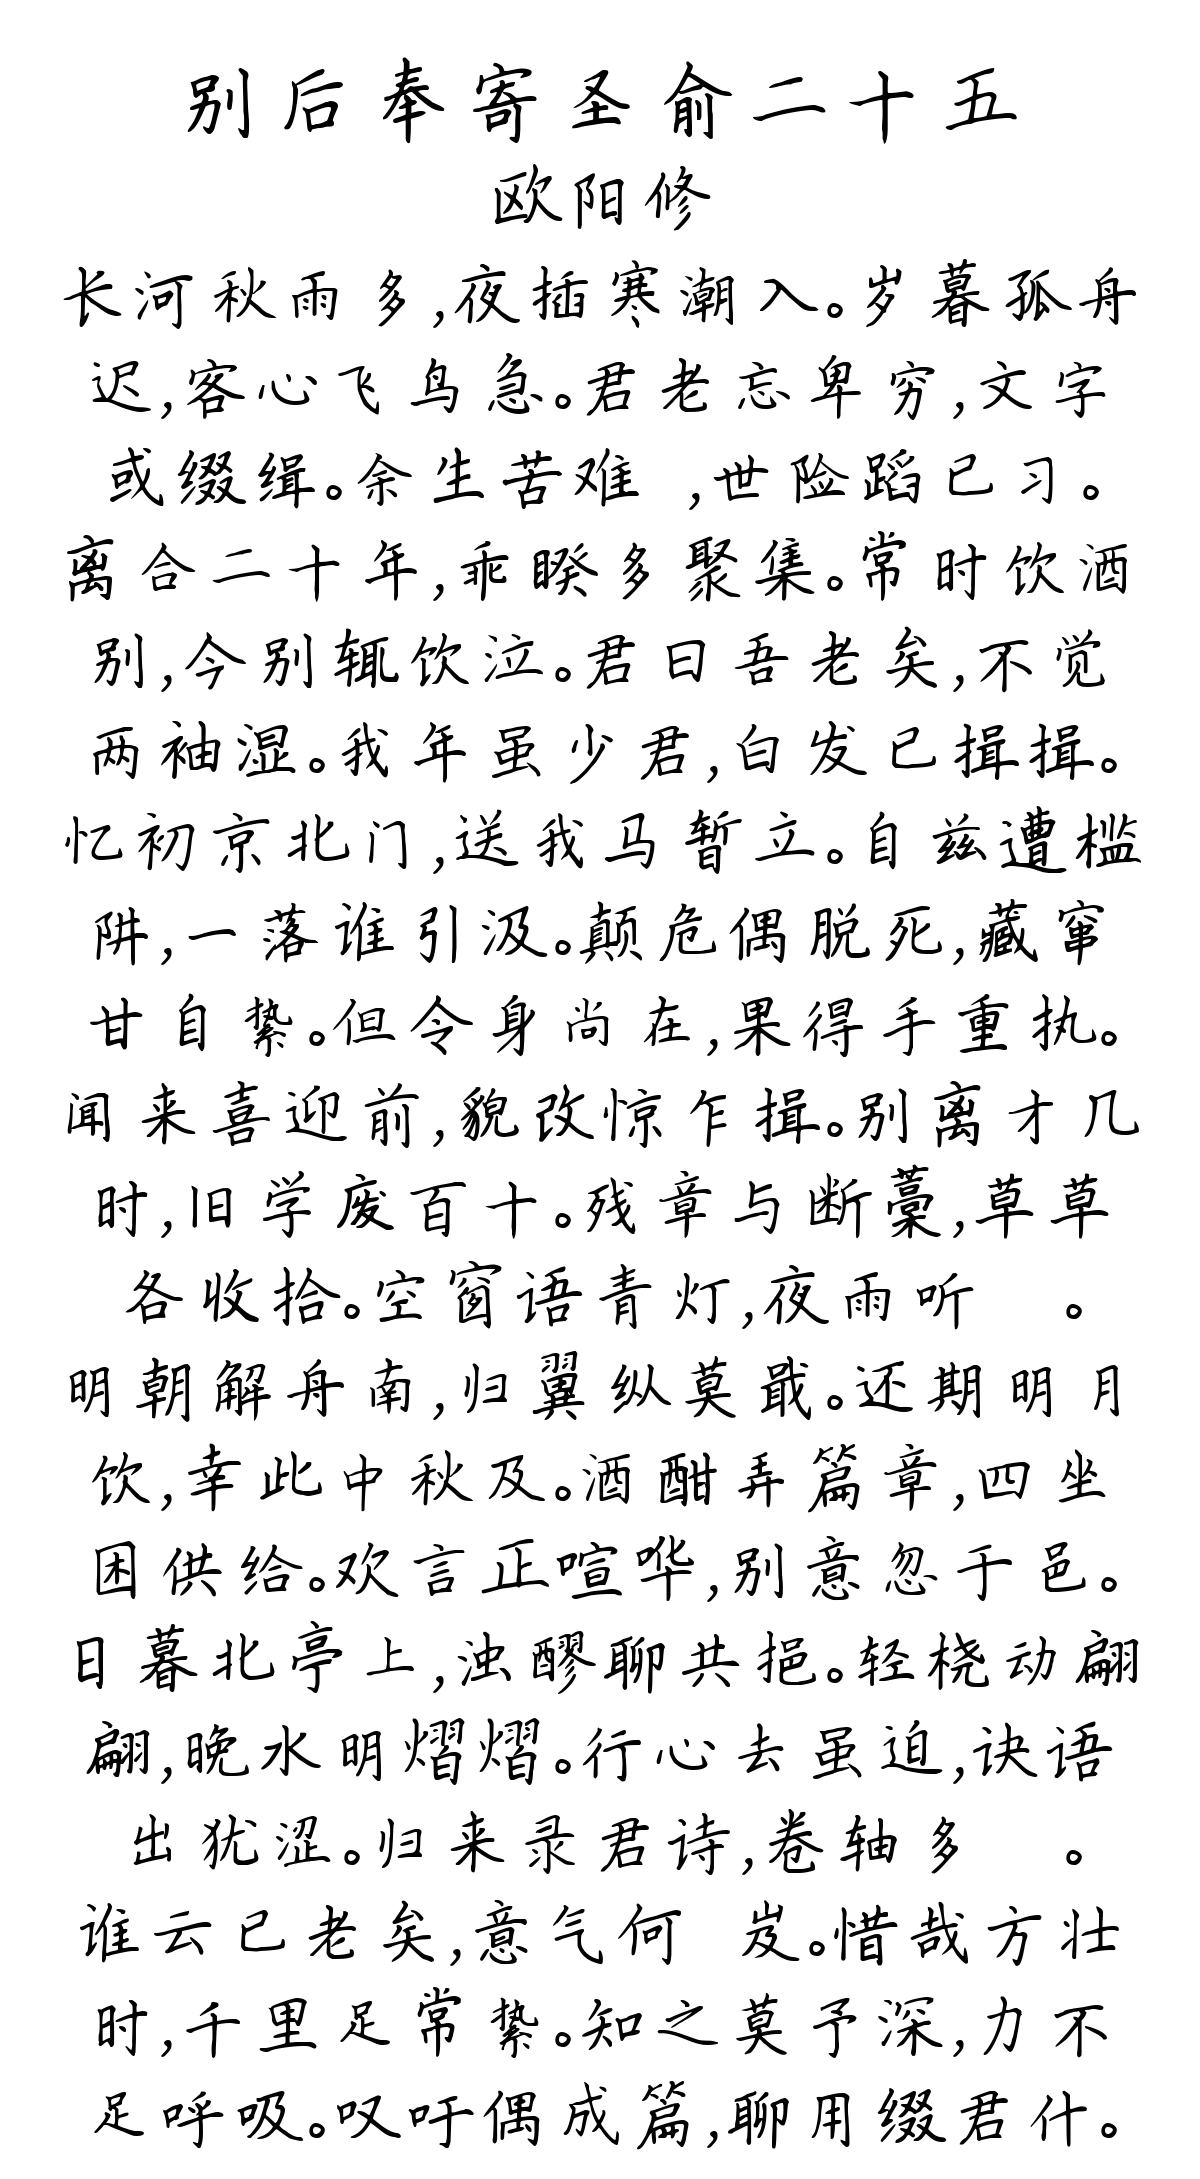 别后奉寄圣俞二十五
欧阳修
长河秋雨多,夜插寒潮入。岁暮孤舟
迟,客心飞鸟急。君老忘卑穷,文字
或缀缉。余生苦难 ,世险蹈已习。
离合二十年,乖睽多聚集。常时饮酒
别,今别辄饮泣。君曰吾老矣,不觉
两袖湿。我年虽少君,白发已揖揖。
忆初京北门,送我马暂立。自兹遭槛
阱,一落谁引汲。颠危偶脱死,藏窜
甘自絷。但令身尚在,果得手重执。
闻来喜迎前,貌改惊乍揖。别离才几
时,旧学废百十。残章与断藁,草草
各收拾。空窗语青灯,夜雨听 。
明朝解舟南,归翼纵莫戢。还期明月
饮,幸此中秋及。酒酣弄篇章,四坐
困供给。欢言正喧哗,别意忽于邑。
日暮北亭上,浊醪聊共挹。轻桡动翩
翩,晚水明熠熠。行心去虽迫,诀语
出犹涩。归来录君诗,卷轴多 。
谁云已老矣,意气何 岌。惜哉方壮
时,千里足常絷。知之莫予深,力不
足呼吸。叹吁偶成篇,聊用缀君什。